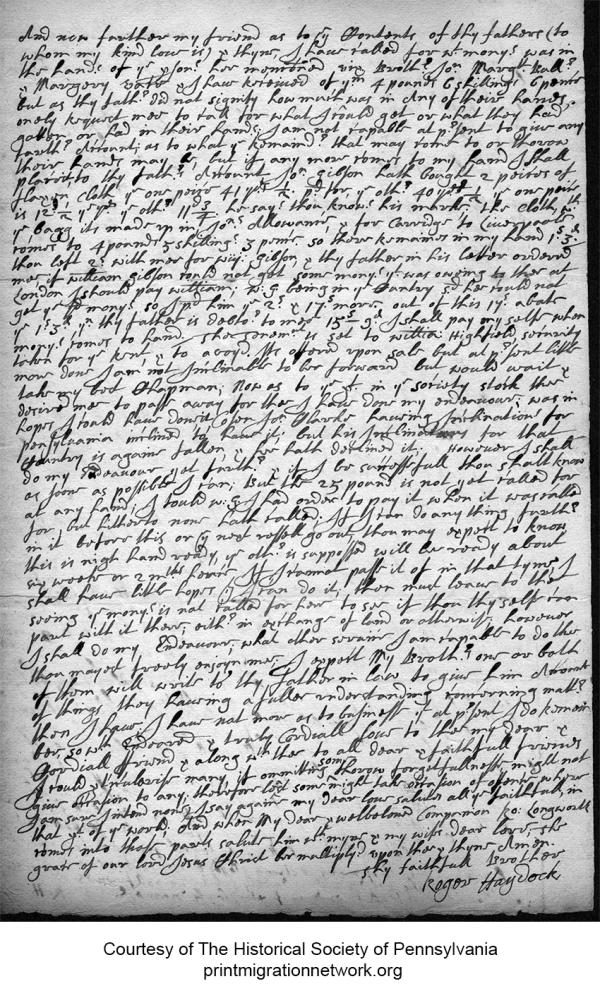 And now farther my friend as to yͤ Contents of thy fathers (to
whom my kind love is) & thyne, I have called for wͭ monys was in
the hands of yͤ psons her mentioned viz Brothʳ Joⁿ Margᵗ Ball?
& Margery & I have received of ym 4 pounds 6 shillings 6 pence
but as thy fathʳ did not signify how much was in Any of their hands,
onely request mee to call for what I could get or what they had
gotten, or had in their hands; I am not capable at pʳsent to give any
farthʳ Account; as to what yͤ remaindʳ that may come to or thorow
their hands may be, but if any more comes to my hand I shall
place it to thy fathʳˢ Account Joⁿ Gibson hath bought 2 peices of
cloth yͤ one peice 41 yᵈˢ pʳ yᵈ, yͤ othʳ 40 yᵈˢ yͤ one peice
is 12ᵈ ½ yͤ yᵈ yͤ othʳ 11ᵈ ¾ he says thou knows his marke the cloth wᵗʰ
yͤ Bagg its made up in, Joⁿˢ Allowance, & for Carridge to Liverpoole
comes to 4 pounds 3 shillings 3 pence so there remaines in my hand 1ˢ 3ᵈ
thou left 2ˢ with mee for wᵐ Gibson & thy father in his letter ordered
mee if william Gibson could not get some monys yͭ was owing to thee at
London I should pay william; W:G being in yͤ Cuntry sᵈ he could not
get yͤ sᵈ monys so I pᵈ him yͤ 2ˢ & 17ˢ more, out of this 17ˢ abate
yͤ 1ˢ 3ᵈ yⁿ thy father is debtoʳ to mee 15ˢ 9ᵈ I shall pay my selfe when
monys comes to hand. is set to william Highfield security
taken for yͤ Rent, & to avoyd. Its offered upon sale but at pʳsent little
more done I am not Inclinable to be forward but would wait &
take my bed Chapman; Now as to yͤ in yͤ society stock thee
desired mee to passe away for thee I have done my endeavour; was in
hopes I could have done it Clarke haveing Inclinations for
Pensylvania inclined to have it; but his Inclination for that
Cuntry is againe fallen, & hee hath declined it; However I shall
do my Endeavour yet farthʳ & if I be successfull thou shalt know
as soon as possible I can; But the 25 pound is not yet called for
at any hand; I told W:G I had order to pay it when it was called
for, but hitherto none hath called; If I can do any thing farthʳ
in it before this or yͤ next vessell go out, thou may expect to know
this is nigh hand ready, yͤ othʳ is supposed will be ready about
six weeks or 2 mᵗʰˢ hence If I cannot passe it of in that tyme, I
shall have little hopes yͭ I can do it; then must leave to thee
seeing yͤ monys is not called for here to see if thou thy selfe can
part with it there, eithʳ in exchange of land or otherwise, however
I shall do my Endeavour, what other service I am capable to do thee
thou mayest freely enjoyn mee. I expect My Brothʳˢ one or both
of them will write to thy father in law to give him Account
of things they haveing a fuller understanding concerning mattʳˢ
then I have, I have not more as to business yͭ at pʳsent I do remem
ber, so wᵗʰ Endeared & truly Cordiall love to thee my dear &
Cordiall friend & along wᵗʰ thee to all dear & faithfull friends
I could pticulerise many, if omitting some thorow forgetfullness might not
give occasion to any; therefore lest some might take occasion of offence where
I am sure I intend none; I say againe my dear love salutes all yͤ faithfull in
that pᵗ of yͤ world. And when My dear & welbeloved Companion Ro: Longworth
comes into those parts salute him wᵗʰ myne & my wifes dear love, the
grace of our lord Jesus Christ bee multiplyᵈ upon thee & thyne Amen.
thy faithfull Brother
Roger Haydock
Courtesy of The Historical Society of Pennsylvania
printmigrationnetwork.org